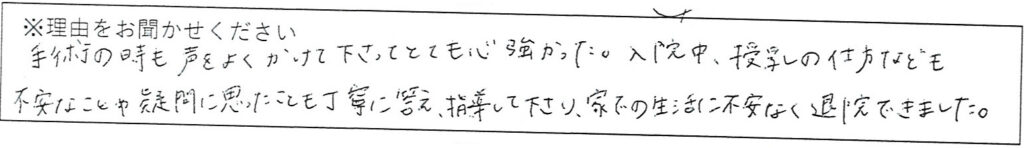 ※理由をお聞かせください
手術の時も声をよくかけて下さってとても心強かった。入院中、授乳の仕方なども
不安なことや疑問に思ったことも丁寧に答え、指導して下さり、家での生活に不安なく退院できました。